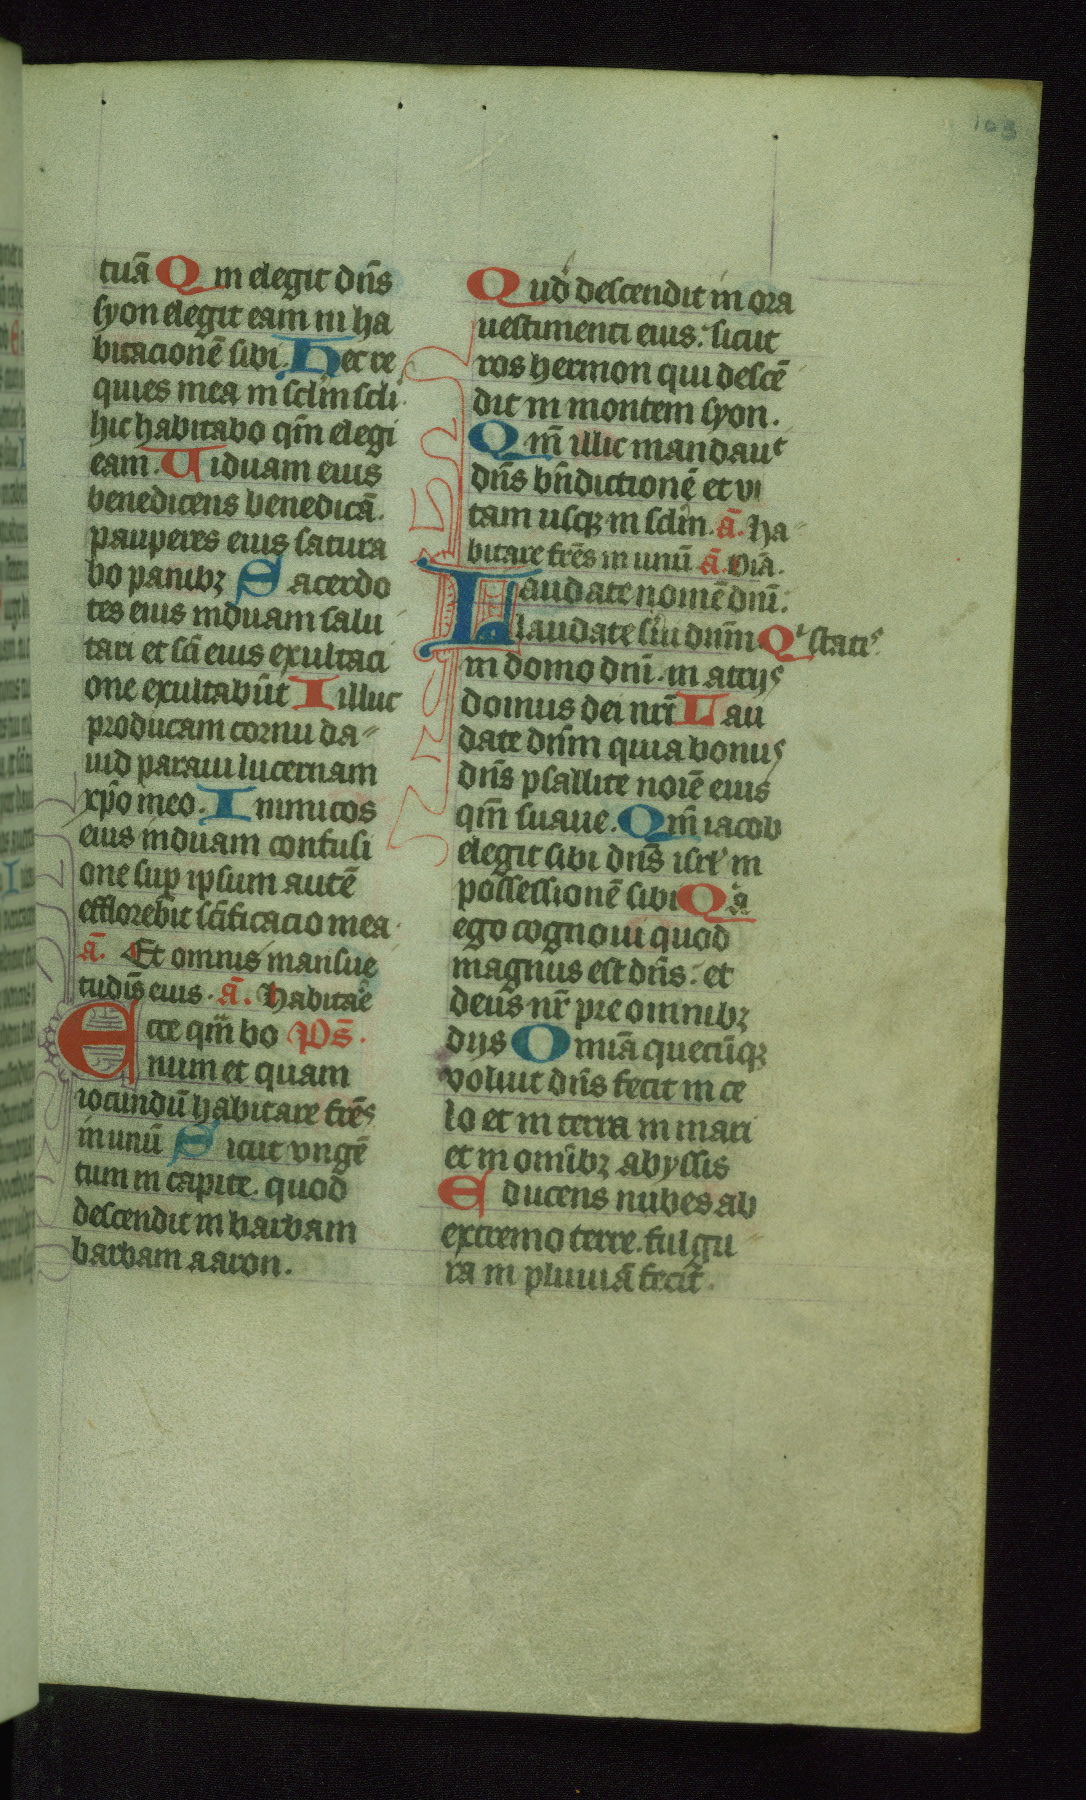 103
tuā Qm elegit dn̄s
syon elegit eam in ha
bitacionē sibi. Hec re
quies mea in sclm̄ scli
hic habitabo qm̄ elegi
eam. Uiduam eius
benedicens benedicā.
pauperes eius satura
bo panibꝫ Sacerdo
tes eius induam salu
tari et sc̄i eius exultaci
one exultabūt Illuc
producam cornu da-
uid paraui lucernam
xp̄o meo. Inimicos
eius induam confusi
one sup̄ ipsum autē
efflorebit sc̄ificacio mea
ā. Et omnis mansue
tudīs eius. ā. Habitar̄e
Ecce qm̄ bo Ps̄.
num et quam
iocundū habitare frēs
in unū Sicut ungē
tum in capite. quod
descendit in barbam
barbam aaron.
Quod descendit in ora
uestimenti eius. sicut
ros hermon qui descē
dit in montem syon.
Qm̄ illic mandauᵗ
dn̄s bn̄dictionē et vi
tam usqꝫ in sclm̄. ā. Ha-
bitare frēs in unū ā. Oīa.
Laudate nomē dn̄i.
laudate s̄ui dn̄m Qⁱ statis
in domo dn̄i. in atrijs
domus dei nr̄i Lau
date dn̄m quia bonus
dn̄s psallite noīe eius
qm̄ suaue. Qm̄ iacob
elegit sibi dn̄s isrl̄ in
possessionē sibi Qᵃ
ego cognoui quod
magnus est dn̄s. et
deus nr̄ pre omnibꝫ
dijs Omīa quecūqꝫ
voluit dn̄s fecit in ce
lo et in terra in mari
et in omībꝫ abyssis
Educens nubes ab
extremo terre. fulgu
ra in pluuiā fecit.